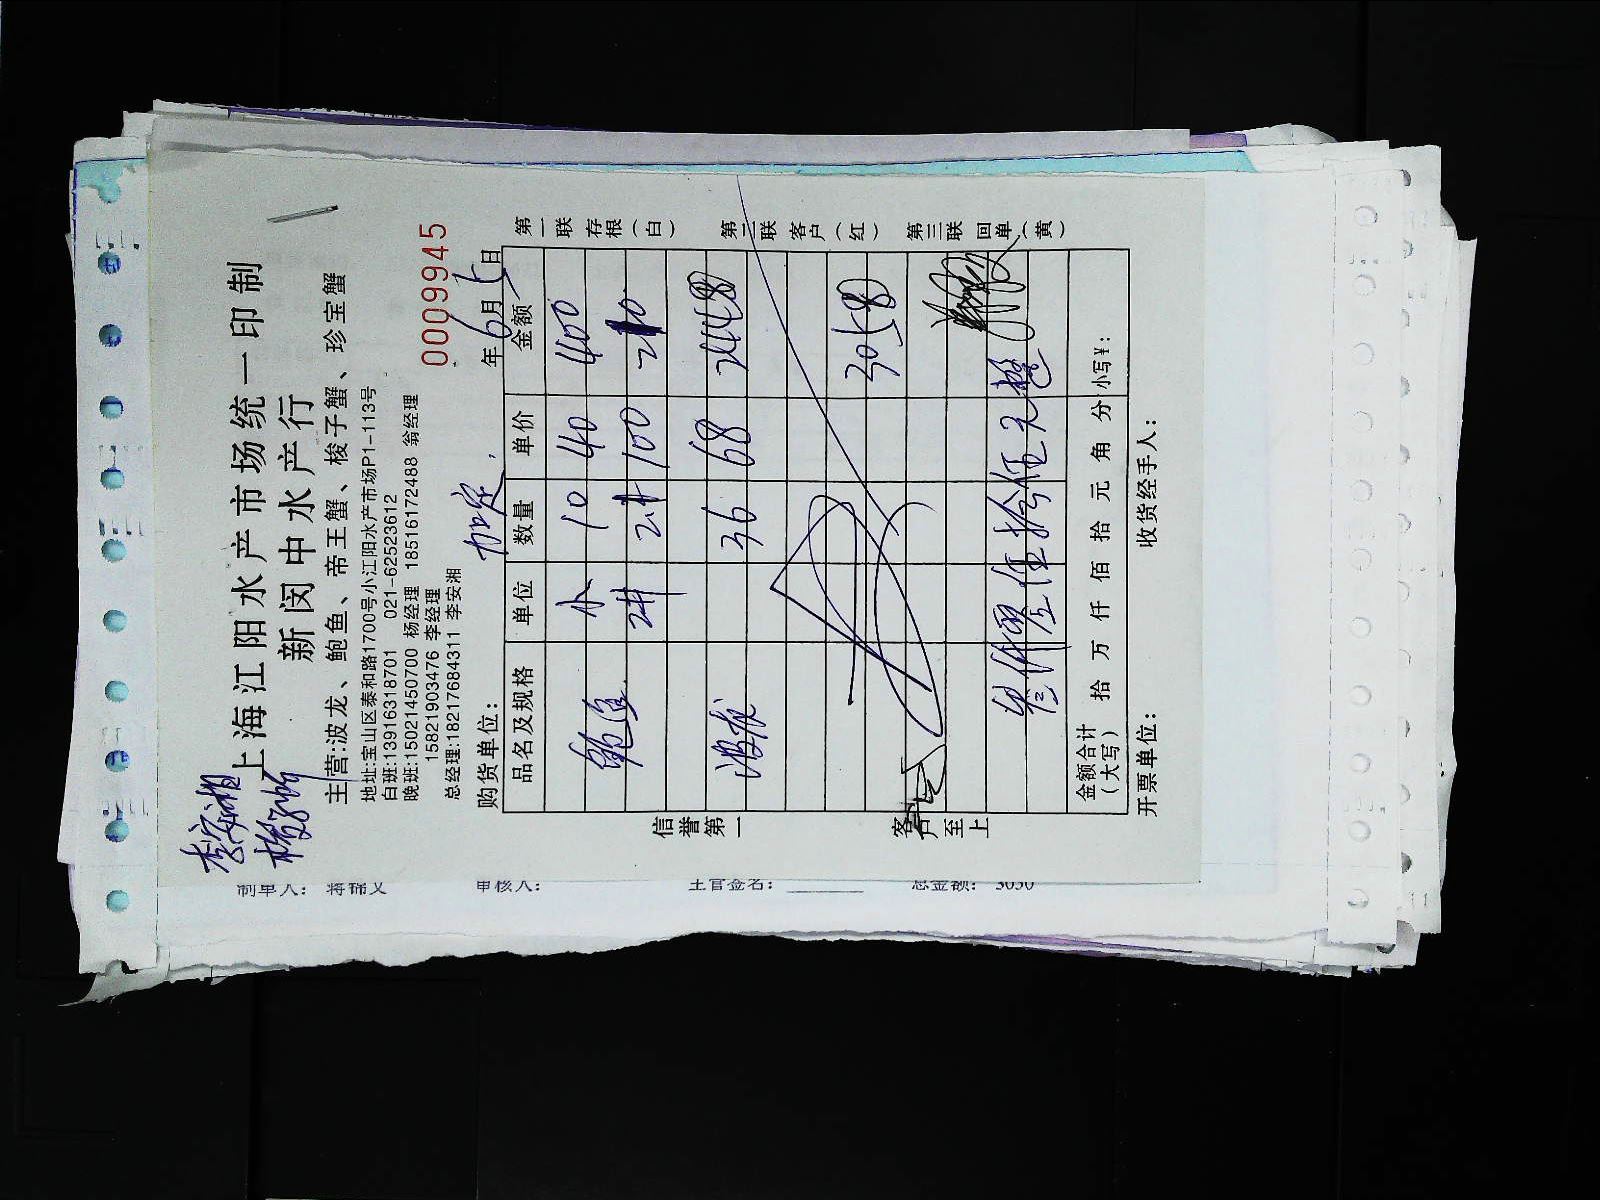 上海江阳水产市场统一印制
新闵中水产行
主营:波龙、鲍鱼、帝王蟹、梭子蟹、珍宝蟹
地址:宝山区泰和路1700号小江阳水产市场P1-113号
白班:13916318701 021-62523612
晚班:15021450700 杨经理 18516172488 翁经理
15821903476 李经理
总经理:18217684311 李安湘
0009945
李安湘
购货单位:
年6月七日
品名及规格 单位 数量 单价 金额
鲍鱼 小 10 40 400
2# 2# 100 210
波龙 36 68 2448
3058
叁仟零伍拾伍元整
金额合计(大写) 拾 万 仟 佰 拾 元 角 分 小写¥:
开票单位: 收货经手人:
第一联 存根(白) 第二联 客户(红) 第三联 回单(黄)
信誉第一 客户至上
制单人: 蒋锦文 审核人: 主管签名: 总金额: 3050